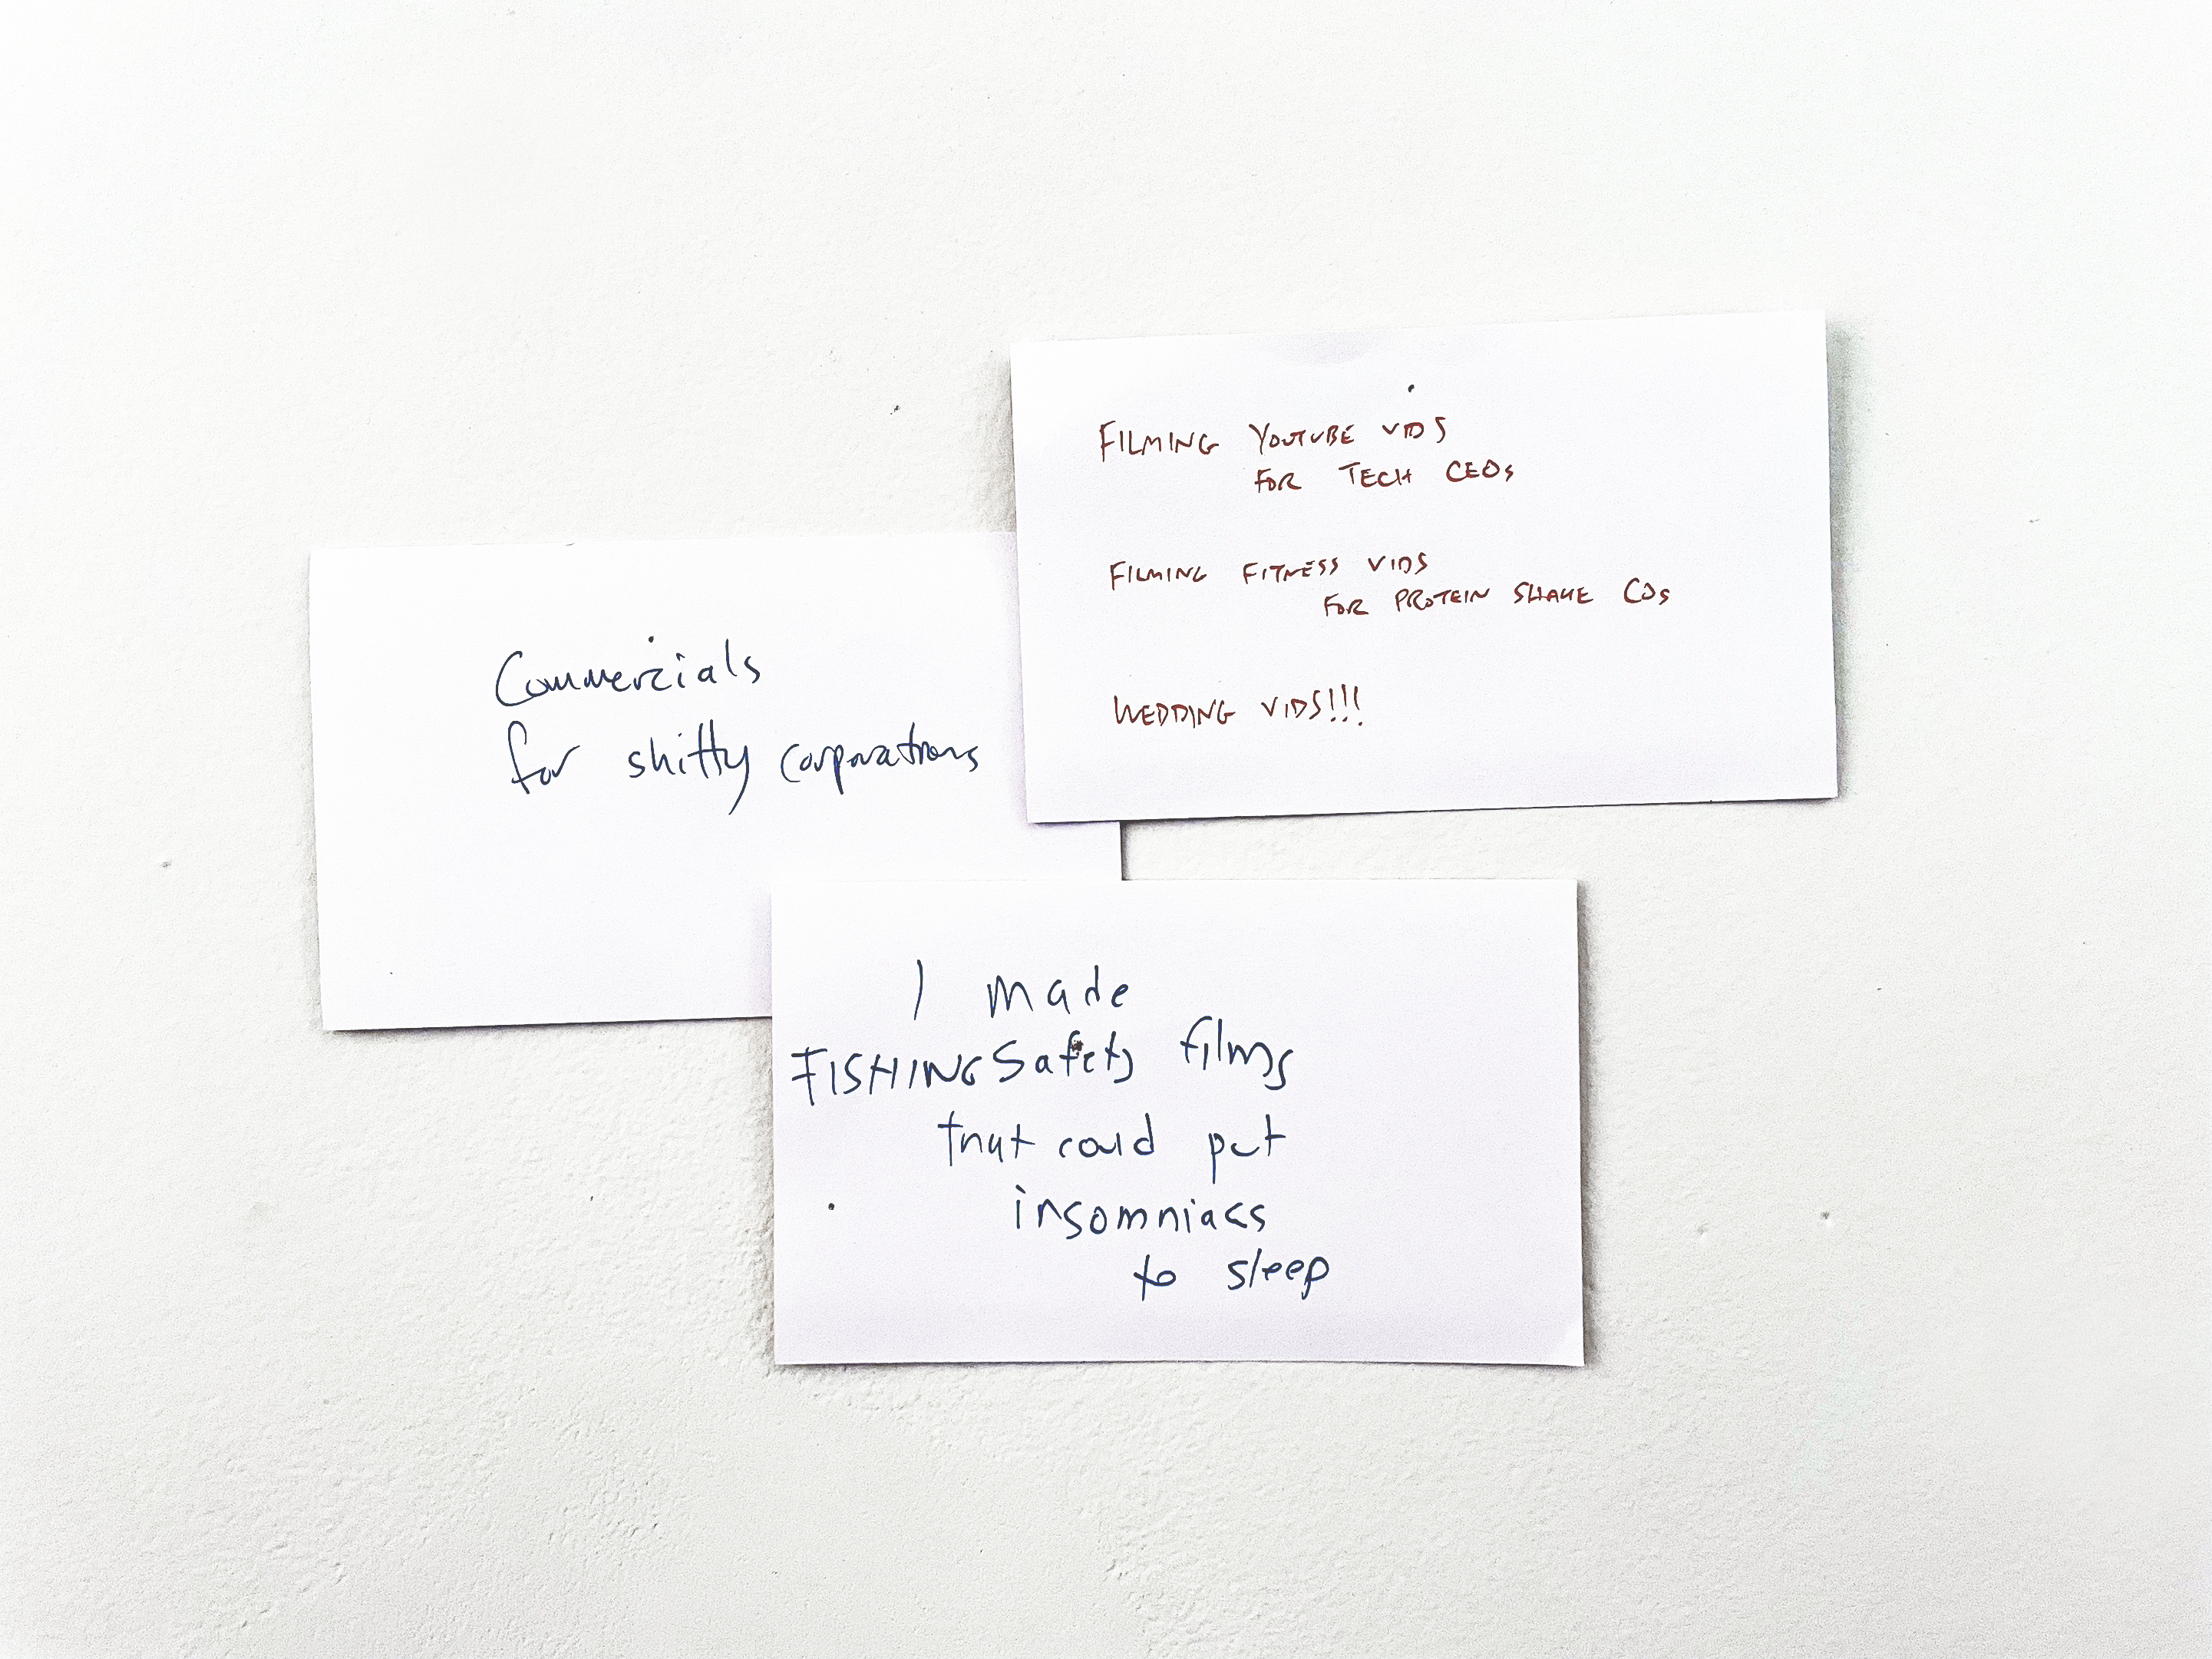 Commercials
for shitty corporations
FILMING YOUTUBE VIDS
FOR TECH CEOs
FILMING FITNESS VIDS
FOR PROTEIN SHAKE COs
WEDDING VIDS!!!
I made
FISHING Safety films
that could put
insomniacs
to sleep